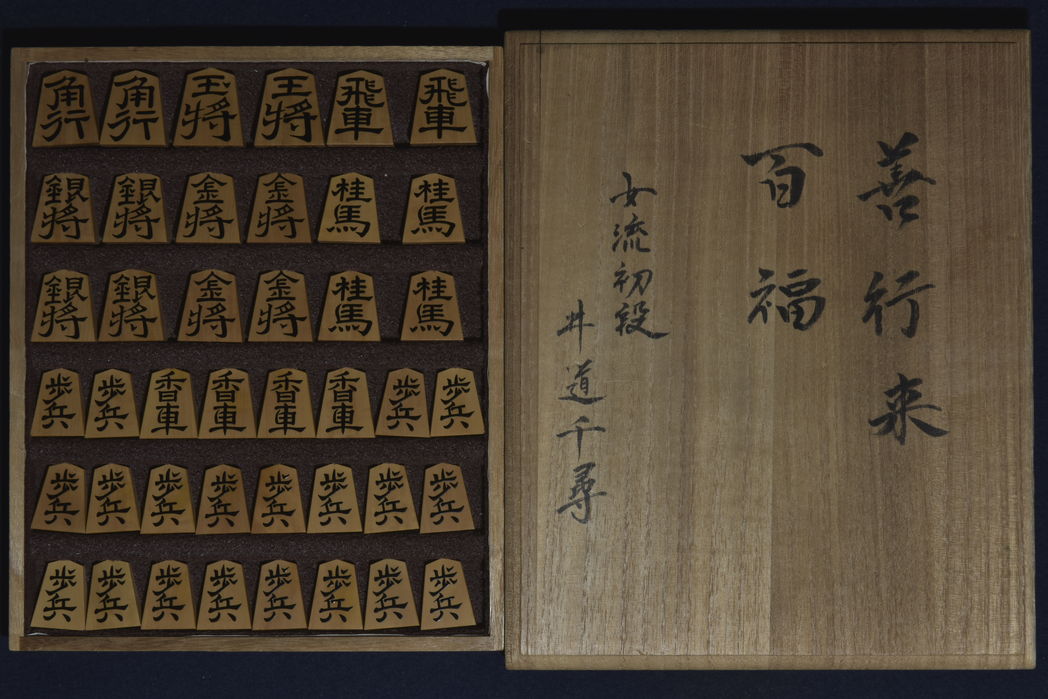 角行 角行 玉将 王将 飛車 飛車
銀将 銀将 金将 金将 桂馬 桂馬
銀将 銀将 金将 金将 桂馬 桂馬
歩兵 歩兵 香車 香車 香車 香車 歩兵 歩兵
歩兵 歩兵 歩兵 歩兵 歩兵 歩兵 歩兵 歩兵
歩兵 歩兵 歩兵 歩兵 歩兵 歩兵 歩兵 歩兵
善行来
百福
女流初段
井道千尋